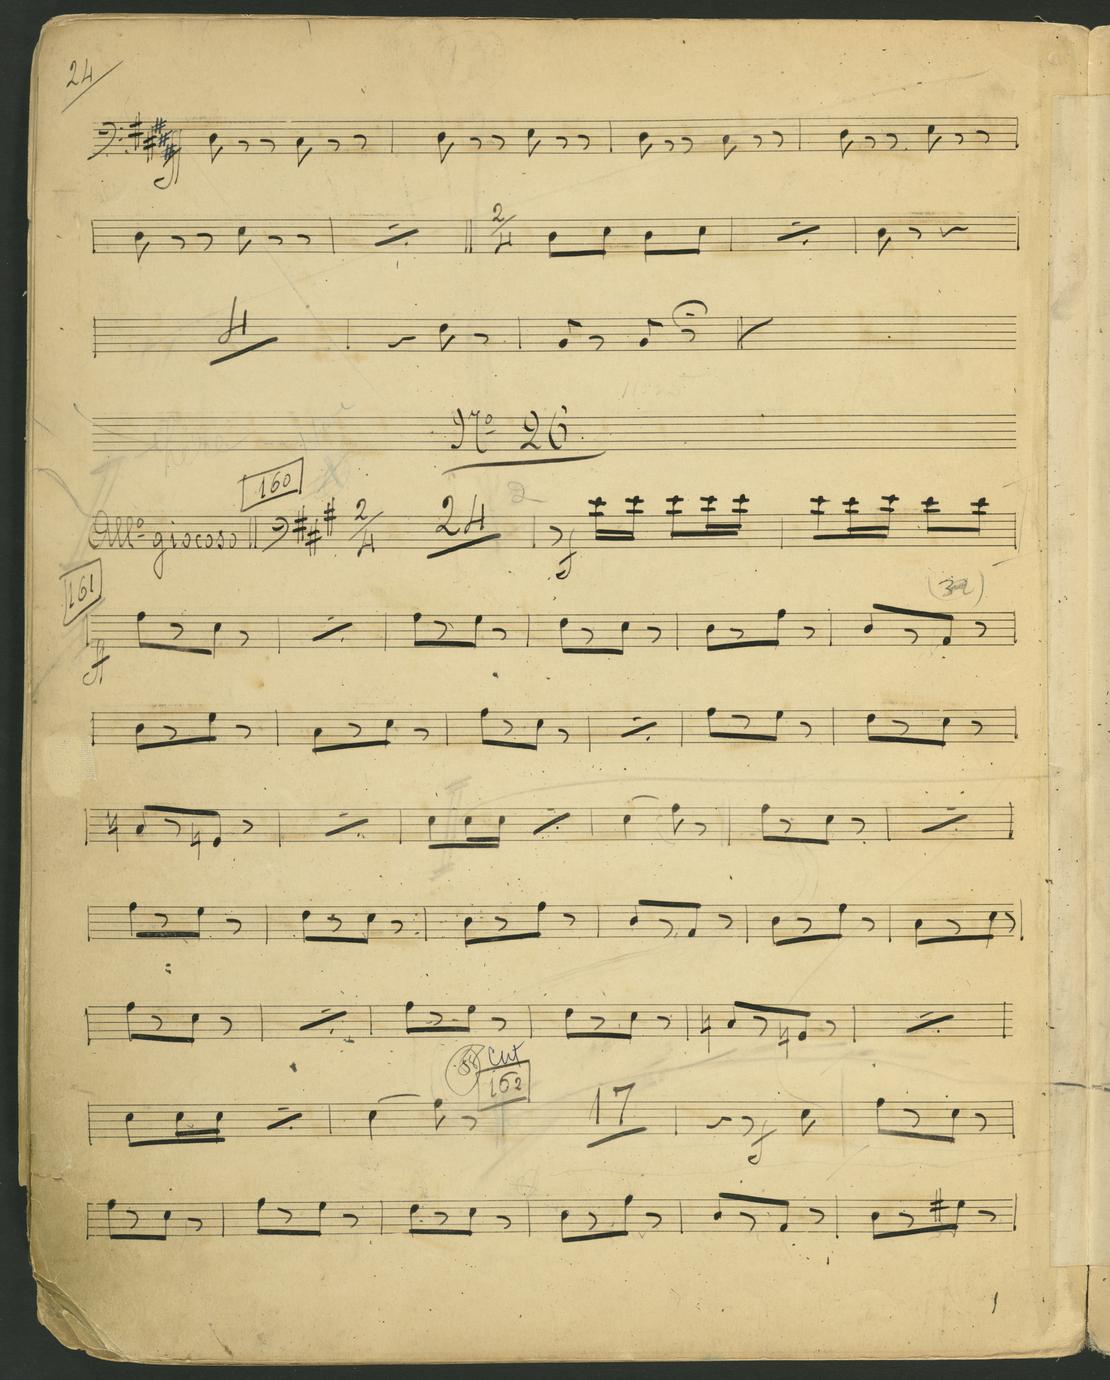 24
ff
2/4
4
Nº 26
160
Allº giocoso 2/4 24 2
f
161
ff
cut
162
17
f